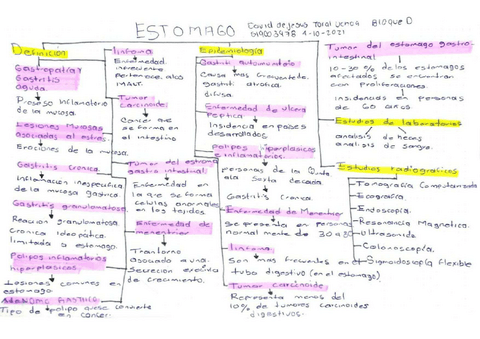 ESTOMAGO
Bloque D
4-10-2021
Definicion
Gastropatia y
Gastritis
aguda
Proseso Inflamatorio
de la mucosa.
Lesiones Mucosas
asociadas al estres
Erociones de la mucosa.
Gastritis Cronica
Inflamacion inespecifica
de la mucosa gastrica.
Gastritis granulomatosa
Reacion granulomatosa
Cronica ideopatica
limitada a estomago.
Polipos inflamatorios
hiperplasicos
Lesiones comunes en
estomago
Tipo de polipo que se convierte
en cancer.
linfoma
Enfermedad
pertenece al os
MALT
Tumor
Carcinoide:
Cancer que
se forma en
el intestino
Tumor del estroma
gastro intestinal
Enfermedad en
la que se forma
celulas anormales
en los tejidos
Enfermedad de
menetrier
Trantorno
asociado a una
secrecion exesiva
de crecimiento.
Epidemiologia
Gastriti autoinmunolo
Causa mas frecuente de
gastriti atrofica
difusa.
Enfermedad de Ulcera
Peptica
Incidencia en paises
desarrollados
Polipos hiperplasicos
e inflamatorios.
personas de la Quinta
a la Sexta decada
Gastritis Cronica
Enfermedad de Menetrier
Se presenta en personas
normal mente de 30 a 50
linfoma
Son mas frecuentes en el
tubo digestivo (en el estomago)
Tumor carcinoide
Representa menos del
10% de tumores carcinoides
digestivos.
Tumor del estomago gastro-
intestinal
10-30 % de los estomagos
afectados se encuentran
con proliferaciones.
insidencias en personas
de 60 años
Estudios de laboratorios
analisis de heces
analisis de sangre.
Estudios radiograficos
Tomografia Computarizada
Ecografia
Endoscopia
Resonancia Magnetica.
Ultrasonido
Colonoscopia.
Sigmoidoscopia flexible